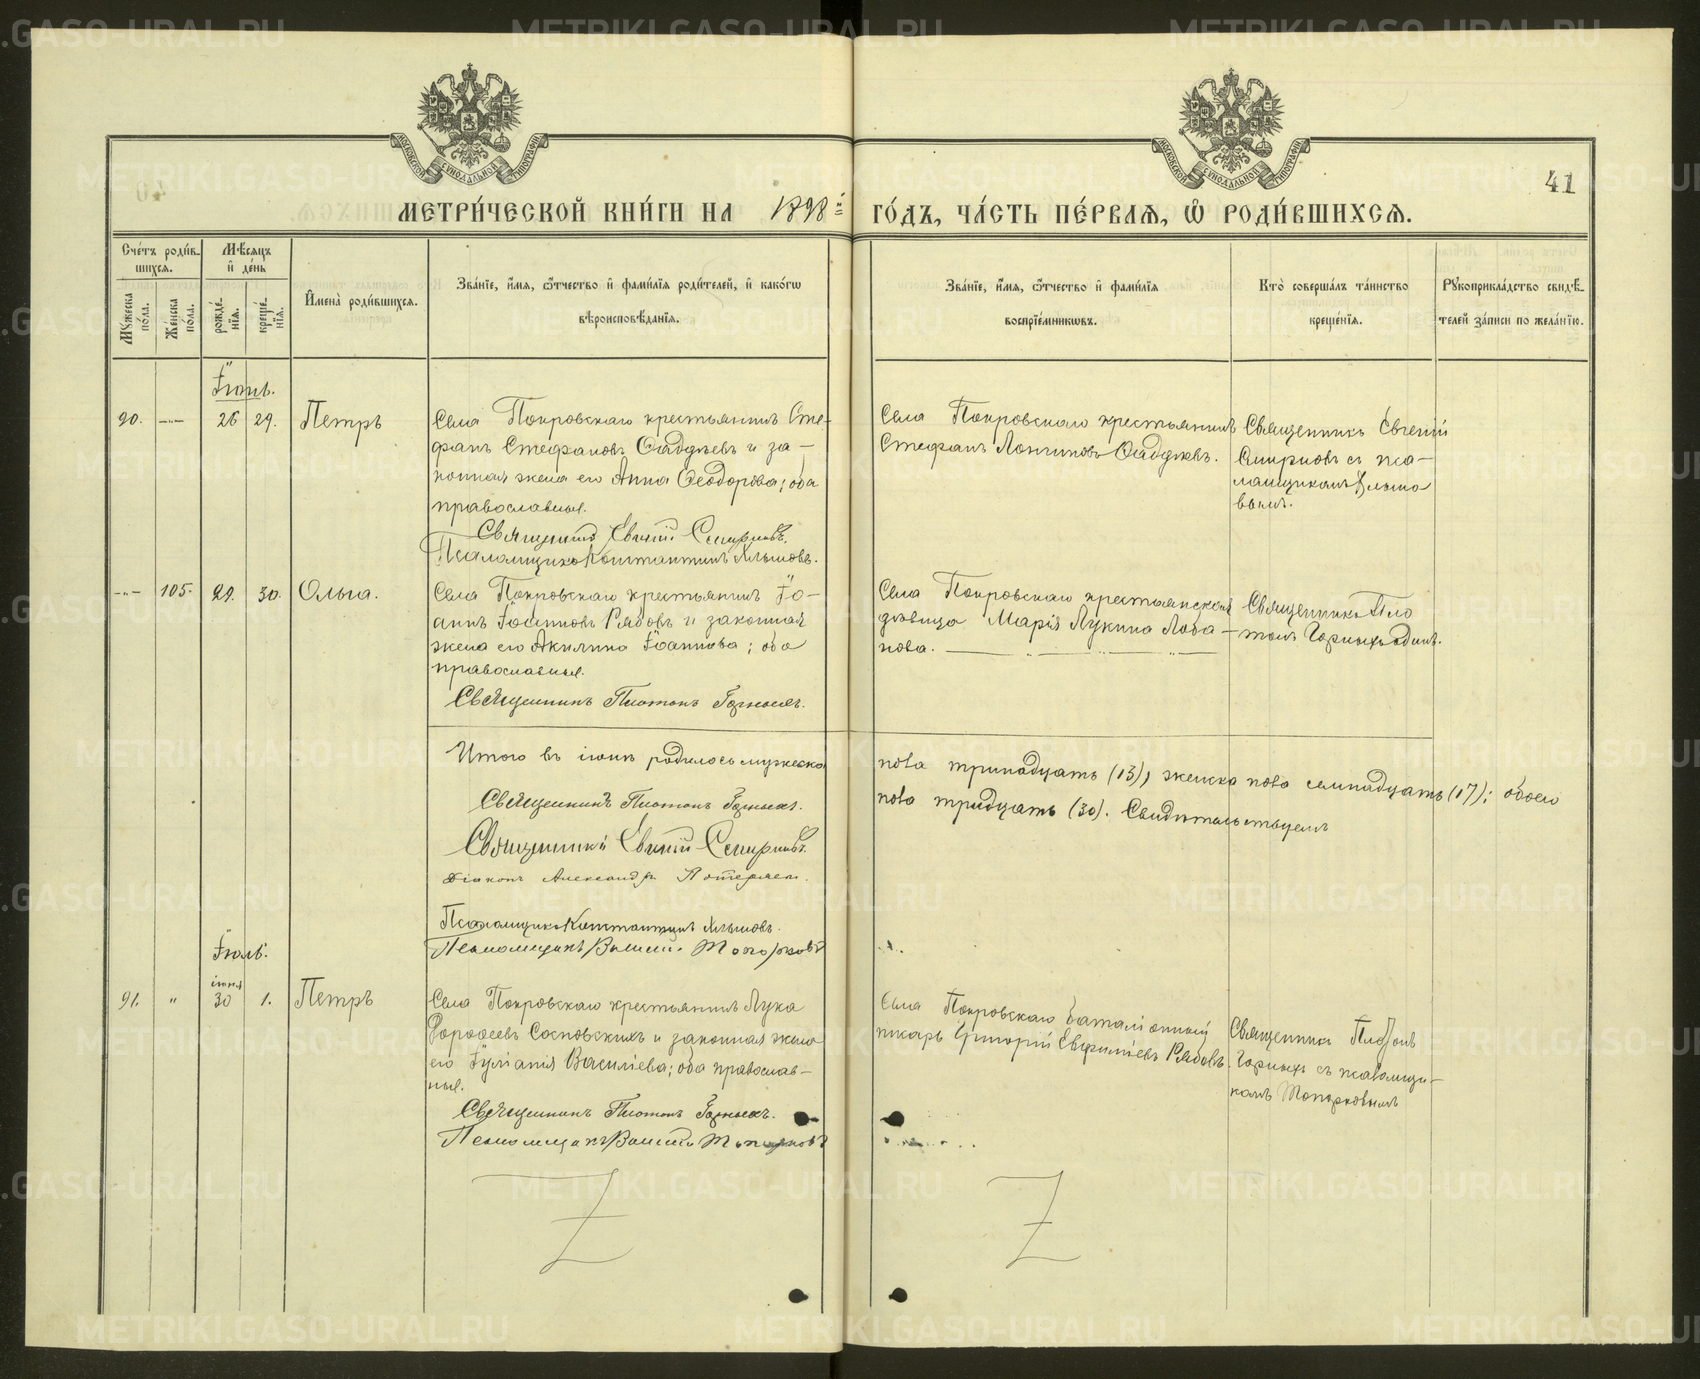 METRIKI.GASO-URAL.RU
МОСКОВСКОЙ СУНОДАЛЬНОЙ ТИПОГРАФІИ
МОСКОВСКОЙ СУНОДАЛЬНОЙ ТИПОГРАФІИ
41
МЕТРИ́ЧЕСКОЙ КНИ́ГИ НА 1898й
ГО́ДЪ, ЧА́СТЬ ПЕ́РВАѦ, Ѡ҆ РОДИ́ВШИХСѦ.
Сче́тъ роди́в-
шихсѧ.
Мѹ́жеска по́ла.
Же́нска по́ла.
Мѣ́сѧцъ
и҆ де́нь
рожде́-
нїѧ.
креще́-
нїѧ.
И҆мена̀ роди́вшихсѧ.
Зва́нїе, и҆́мѧ, ѻ҆́тчество и҆ фами́лїѧ роди́телей, и҆ како́гѡ
вѣроисповѣ́данїѧ.
Зва́нїе, и҆́мѧ, ѻ҆́тчество и҆ фами́лїѧ
воспрїе́мникѡвъ.
Кто̀ соверша́лъ та́инство
креще́нїѧ.
Рѹкоприкла́дство свидѣ́-
телей за́писи по жела́нїю.
Іюнь.
90. —"— 26 29. Петръ
Села Покровскаго крестьянинъ Сте-
фанъ Стефановъ Ѳаддѣевъ и за-
конная жена его Анна Ѳеодорова; оба
православные.
Священникъ Евгеній Смирновъ.
Псаломщикъ Константинъ
Села Покровскаго крестьянинъ
Стефанъ Логиновъ Ѳаддѣевъ.
Священникъ Евгеній
Смирновъ съ пса-
ломщикомъ
вымъ.
—"— 105. 29. 30. Ольга.
Села Покровскаго крестьянинъ Іо-
аннъ Іоанновъ Рябовъ и законная
жена его Акилина Іоаннова; оба
православные.
Священникъ Платонъ Горныхъ.
Села Покровскаго крестьянская
дѣвица Марія Лукина Лоба-
нова.
Священникъ Пла
тонъ Горныхъ одинъ.
Итого въ іюнѣ родилось мужеска
пола тринадцать (13), женска пола семнадцать (17); обоего
пола тридцать (30). Свидѣтельствуемъ
Священникъ Платонъ Горныхъ.
Священникъ Евгеній Смирновъ.
Діаконъ Александръ
Псаломщикъ Константинъ
Псаломщикъ Василій Топорковъ
Іюль.
91. " іюня 30 1. Петръ
Села Покровскаго крестьянинъ Лука
Дороѳеевъ Сосновскихъ и законная жена
его Іуліанія Василіева; оба православ-
ные.
Священникъ Платонъ Горныхъ.
Псаломщикъ Василій Топорковъ
Села Покровскаго баталіонный
писарь Григорій Евфиміевъ Рябовъ.
Священникъ Платонъ
Горныхъ съ псаломщи-
комъ Топорковымъ